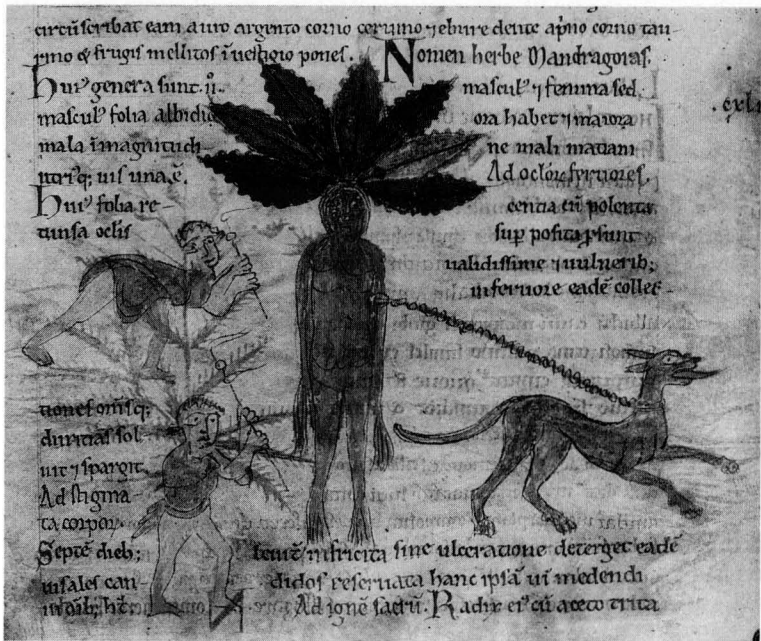 circũscribat eam auro argento cornio ceruino ⁊ ebure dente apño cornio tau
rino & frugis mellitos ĩ uestigio pones. Nomen herbe Mandragoras.
Huiꝰ genera sunt .ij. masculꝰ ⁊ femina sed
masculꝰ folia albidi ora habet ⁊ maiora
mala ĩ magnitudi ne mali maciani
utriq; uis una ẽ. Ad oclõꝝ feruores.
Huiꝰ folia re centia cũ polenta
tunsa oclis suꝑ posita ꝓsunt
ualidissime ⁊ uulnerib;
in feruore eadẽ collec
tiones om̃sq;
duritias sol
uit ⁊ spargit.
Ad stigma
ta corpor
Septẽ dieb; leuit̃ infricita sine ulceratione deterget eadẽ
uisales can didos reseruata hanc ipsã uĩ medendi
Ad ignẽ sacrũ. Radix eiꝰ cũ aceto trita
.cxli